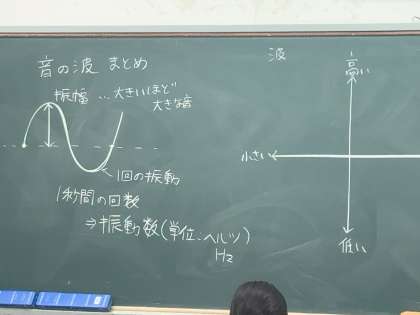 音の波 まとめ
振幅 … 大きいほど
大きな音
1回の振動
1秒間の回数
⇒振動数(単位:ヘルツ)
Hz
波
高い
小さい
低い